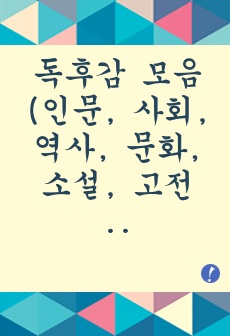 독후감 모음
(인문, 사회,
역사, 문화,
소설, 고전
..